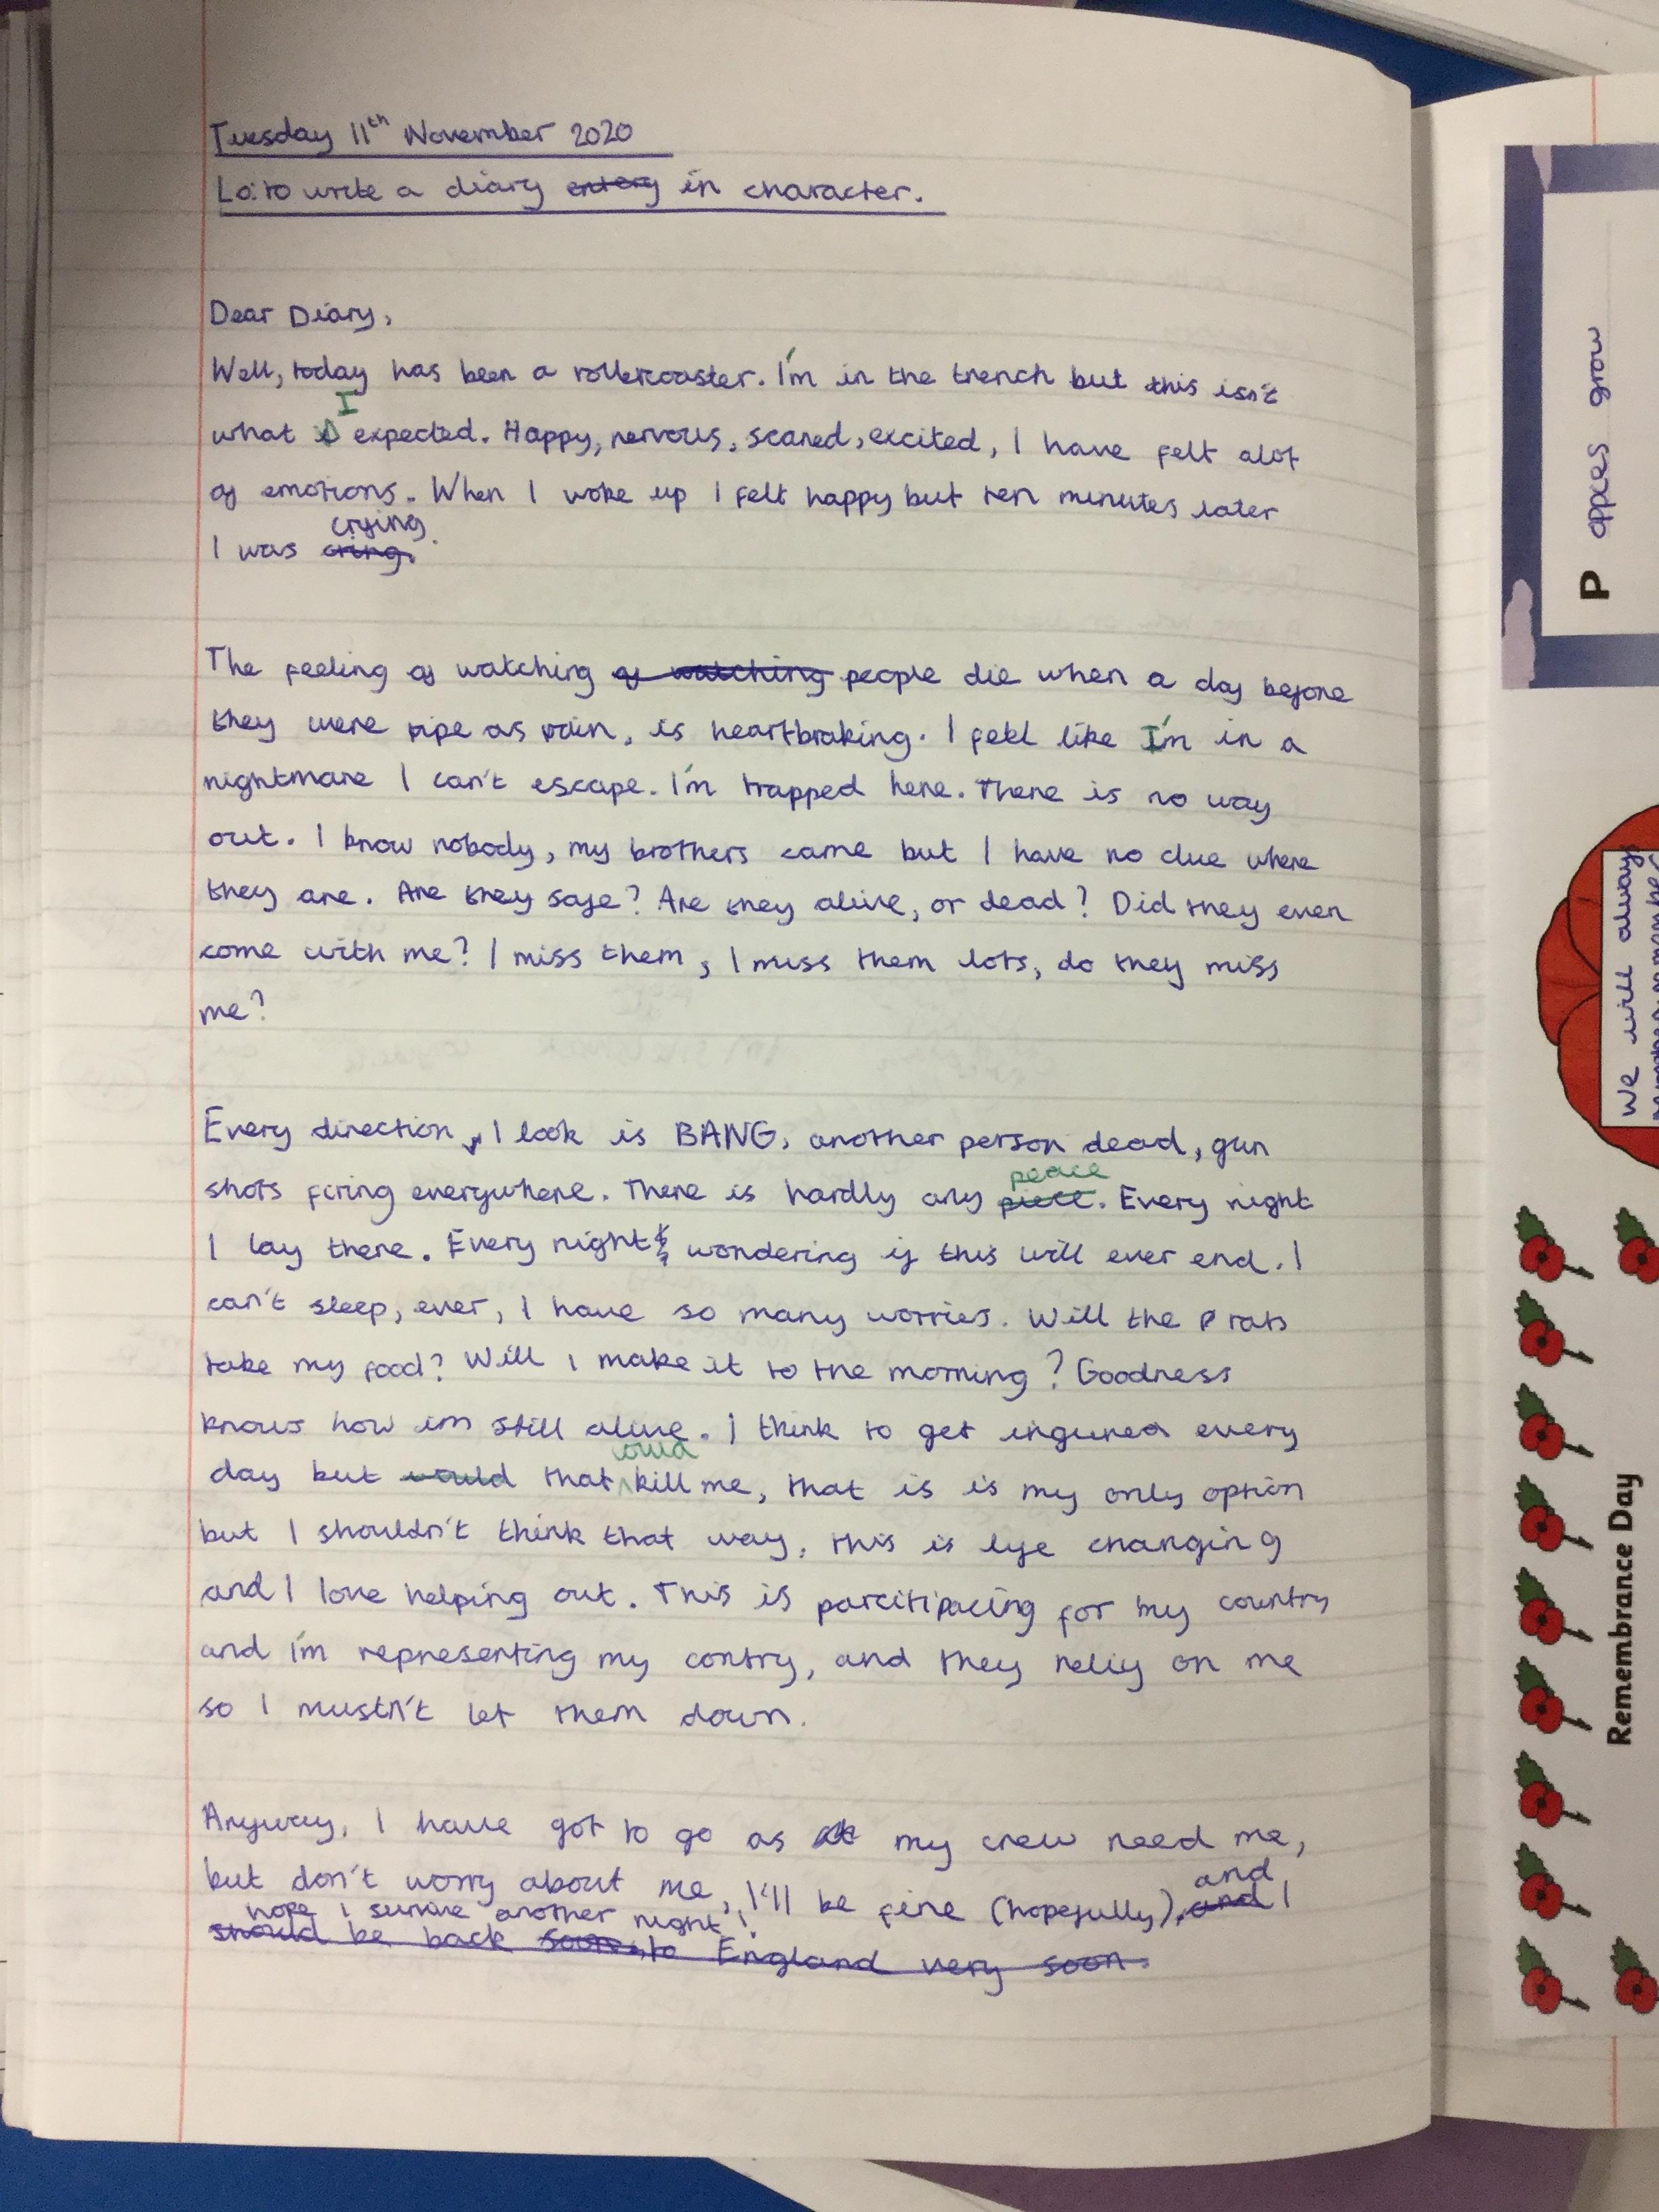 Tuesday 11th November 2020
Lo: to write a diary entery in character.
Dear Diary,
Well, today has been a rollercoaster. I'm in the trench but this isn't
what I expected. Happy, nervous, scared, excited, I have felt alot
of emotions. When I woke up I felt happy but ten minutes later
crying.
I was cring.
The feeling of watching of watching people die when a day before
they were ripe as rain, is heartbraking. I feel like I'm in a
nightmare I can't escape. I'm trapped here. There is no way
out. I know nobody, my brothers came but I have no clue where
they are. Are they safe? Are they alive, or dead? Did they even
come with me? I miss them, I miss them lots, do they miss
me?
Every direction, I look is BANG, another person dead, gun
peace
shots firing everywhere. There is hardly any piece. Every night
I lay there. Every night wondering if this will ever end. I
can't sleep, ever, I have so many worries. Will the rats
take my food? Will I make it to the morning? Goodness
knows how im still alive. I think to get ingured every
day but would that kill me, that is is my only option
but I shouldn't think that way, this is life changing
and I love helping out. This is parcitipacing for my country
and i'm representing my contry, and they reliy on me
so I mustn't let them down.
Anyway, I have got to go as my crew need me,
and
but don't worry about me, I'll be fine (hopefully), and I
hope i survive another night!
should be back soon, to England very soon.
P appces grow
We will always
Remembrance Day